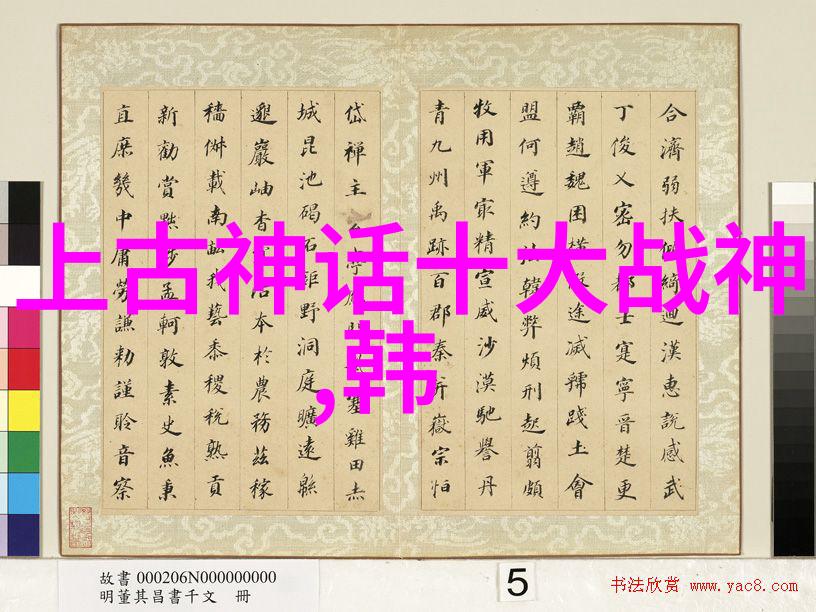 上古神话十大战神
,韩
合濟弱扶綺迴漢惠說感武
丁俊乂密勿士寔寧晉楚更
霸趙魏困橫途滅虢踐土會
盟何遵約法韓弊煩刑起翦頗
牧用軍冣精宣威沙漠馳譽丹
青九州禹跡百郡秦并嶽宗恒
岱禪主亭塞雞田赤
城昆池碣石鉅野洞庭曠遠緜
邈巖岫杳治本於農務茲稼
穡俶載南畝我藝黍稷稅熟貢
新勸賞黜陟孟軻敦素史魚秉
直庶幾中庸勞謙勅謹聆音察
故書 000206N000000000
明董其昌書千文 冊
5
书法欣赏 www.yac8.com